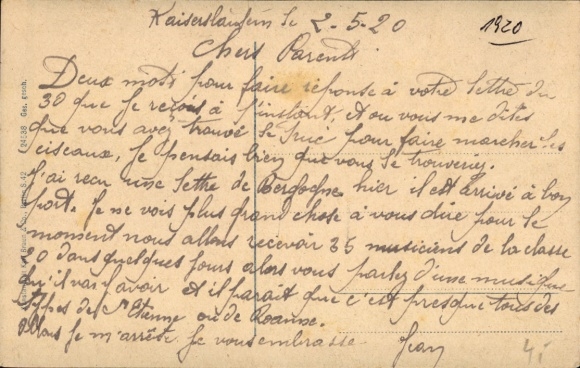 Kaiserslautern le 2-5-20
1920
Chers Parents
Deux mots pour faire réponse à votre lettre du
30 que je reçois à l'instant, et ou vous me dites
que vous avez trouvé le truc pour faire marcher les
ciseaux, je pensais bien que vous le trouveriez.
J'ai reçu une lettre de hier il est arrivé à bon
port. Je ne vois plus grand chose à vous dire pour le
moment nous allons recevoir 35 musiciens de la classe
20 dans quelques jours alors vous parlez d'une musique
qu'il va y avoir et il parait que c'est presque tous des
types de St Etienne ou de Roanne.
Je m'arrête Je vous embrasse
Jean
Ges. gesch.